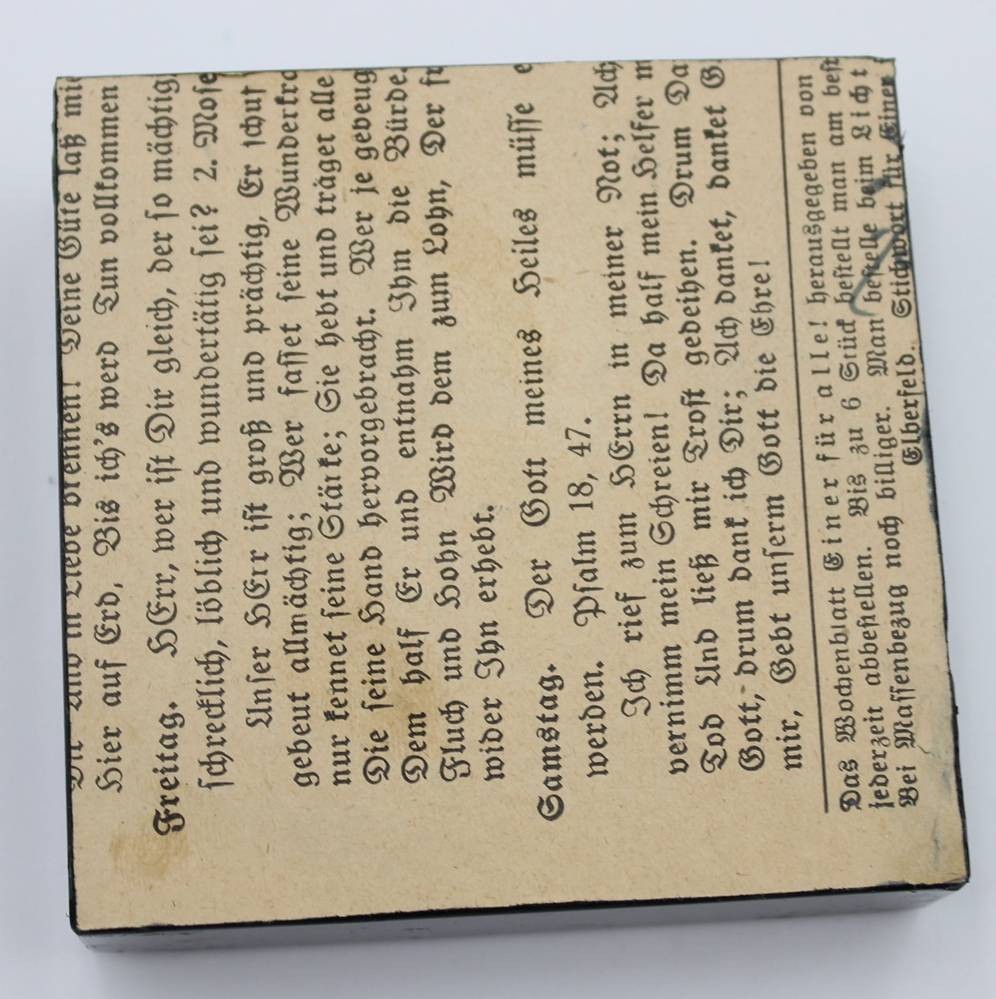 Dir Und in Liebe brennen! Deine Güte laß mi
Hier auf Erd, Bis ich's werd Tun vollkommen
Freitag. HErr, wer ist Dir gleich, der so mächtig,
schrecklich, löblich und wundertätig sei? 2. Mose
Unser HErr ist groß und prächtig, Er schuf
gebeut allmächtig; Wer fasset seine Wunderkra
nur kennet seine Stärke; Sie hebt und träget alle
Die seine Hand hervorgebracht. Wer je gebeug
Dem half Er und entnahm Ihm die Bürde.
Fluch und Hohn Wird dem zum Lohn, Der fr
wider Ihn erhebt.
Samstag. Der Gott meines Heiles müsse e
werden. Psalm 18, 47.
Ich rief zum HErrn in meiner Not; Ach
vernimm mein Schreien! Da half mein Helfer m
Tod Und ließ mir Trost gedeihen. Drum Da
Gott, drum dank ich Dir; Ach danket, danket G
mir, Gebt unserm Gott die Ehre!
Das Wochenblatt Einer für alle! herausgegeben von
jederzeit abbestellen. Bis zu 6 Stück bestellt man am best
Bei Massenbezug noch billiger. Man bestelle beim Licht
Elberfeld. Stichwort für Einer f